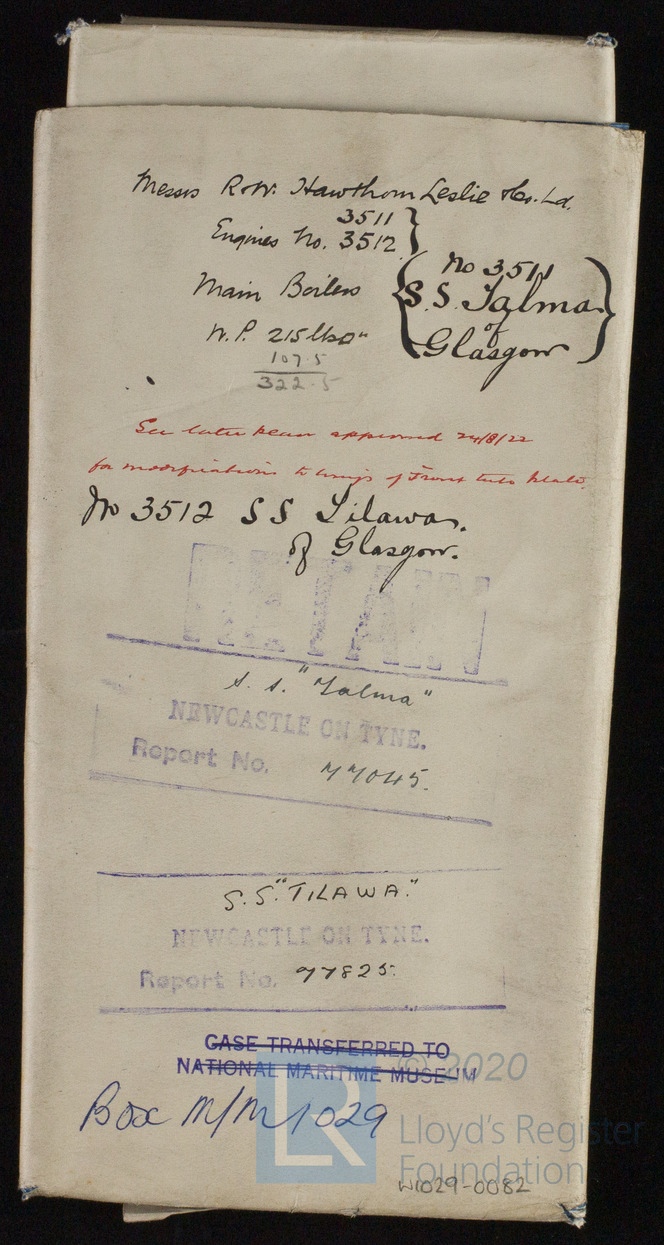 Messrs R & W. Hawthorn Leslie & Co. Ld.
3511
Engines No. 3512
Main Boilers
W.P. 215 lbs □"
107.5
322.5
No 3511
S.S. Talma
of
Glasgow
See later plan approved 24/8/22
for modifications to wings of Front tube plate.
No 3512 SS Tilawa.
of Glasgow.
RETAIN
s. s. "Talma"
NEWCASTLE ON TYNE.
Report No. 77045.
S.S. "TILAWA."
NEWCASTLE ON TYNE.
Report No. 77825.
CASE TRANSFERRED TO
NATIONAL MARITIME MUSEUM
© 2020
Box M/M 1029
LR
Lloyd's Register
Foundation
W1029-0082